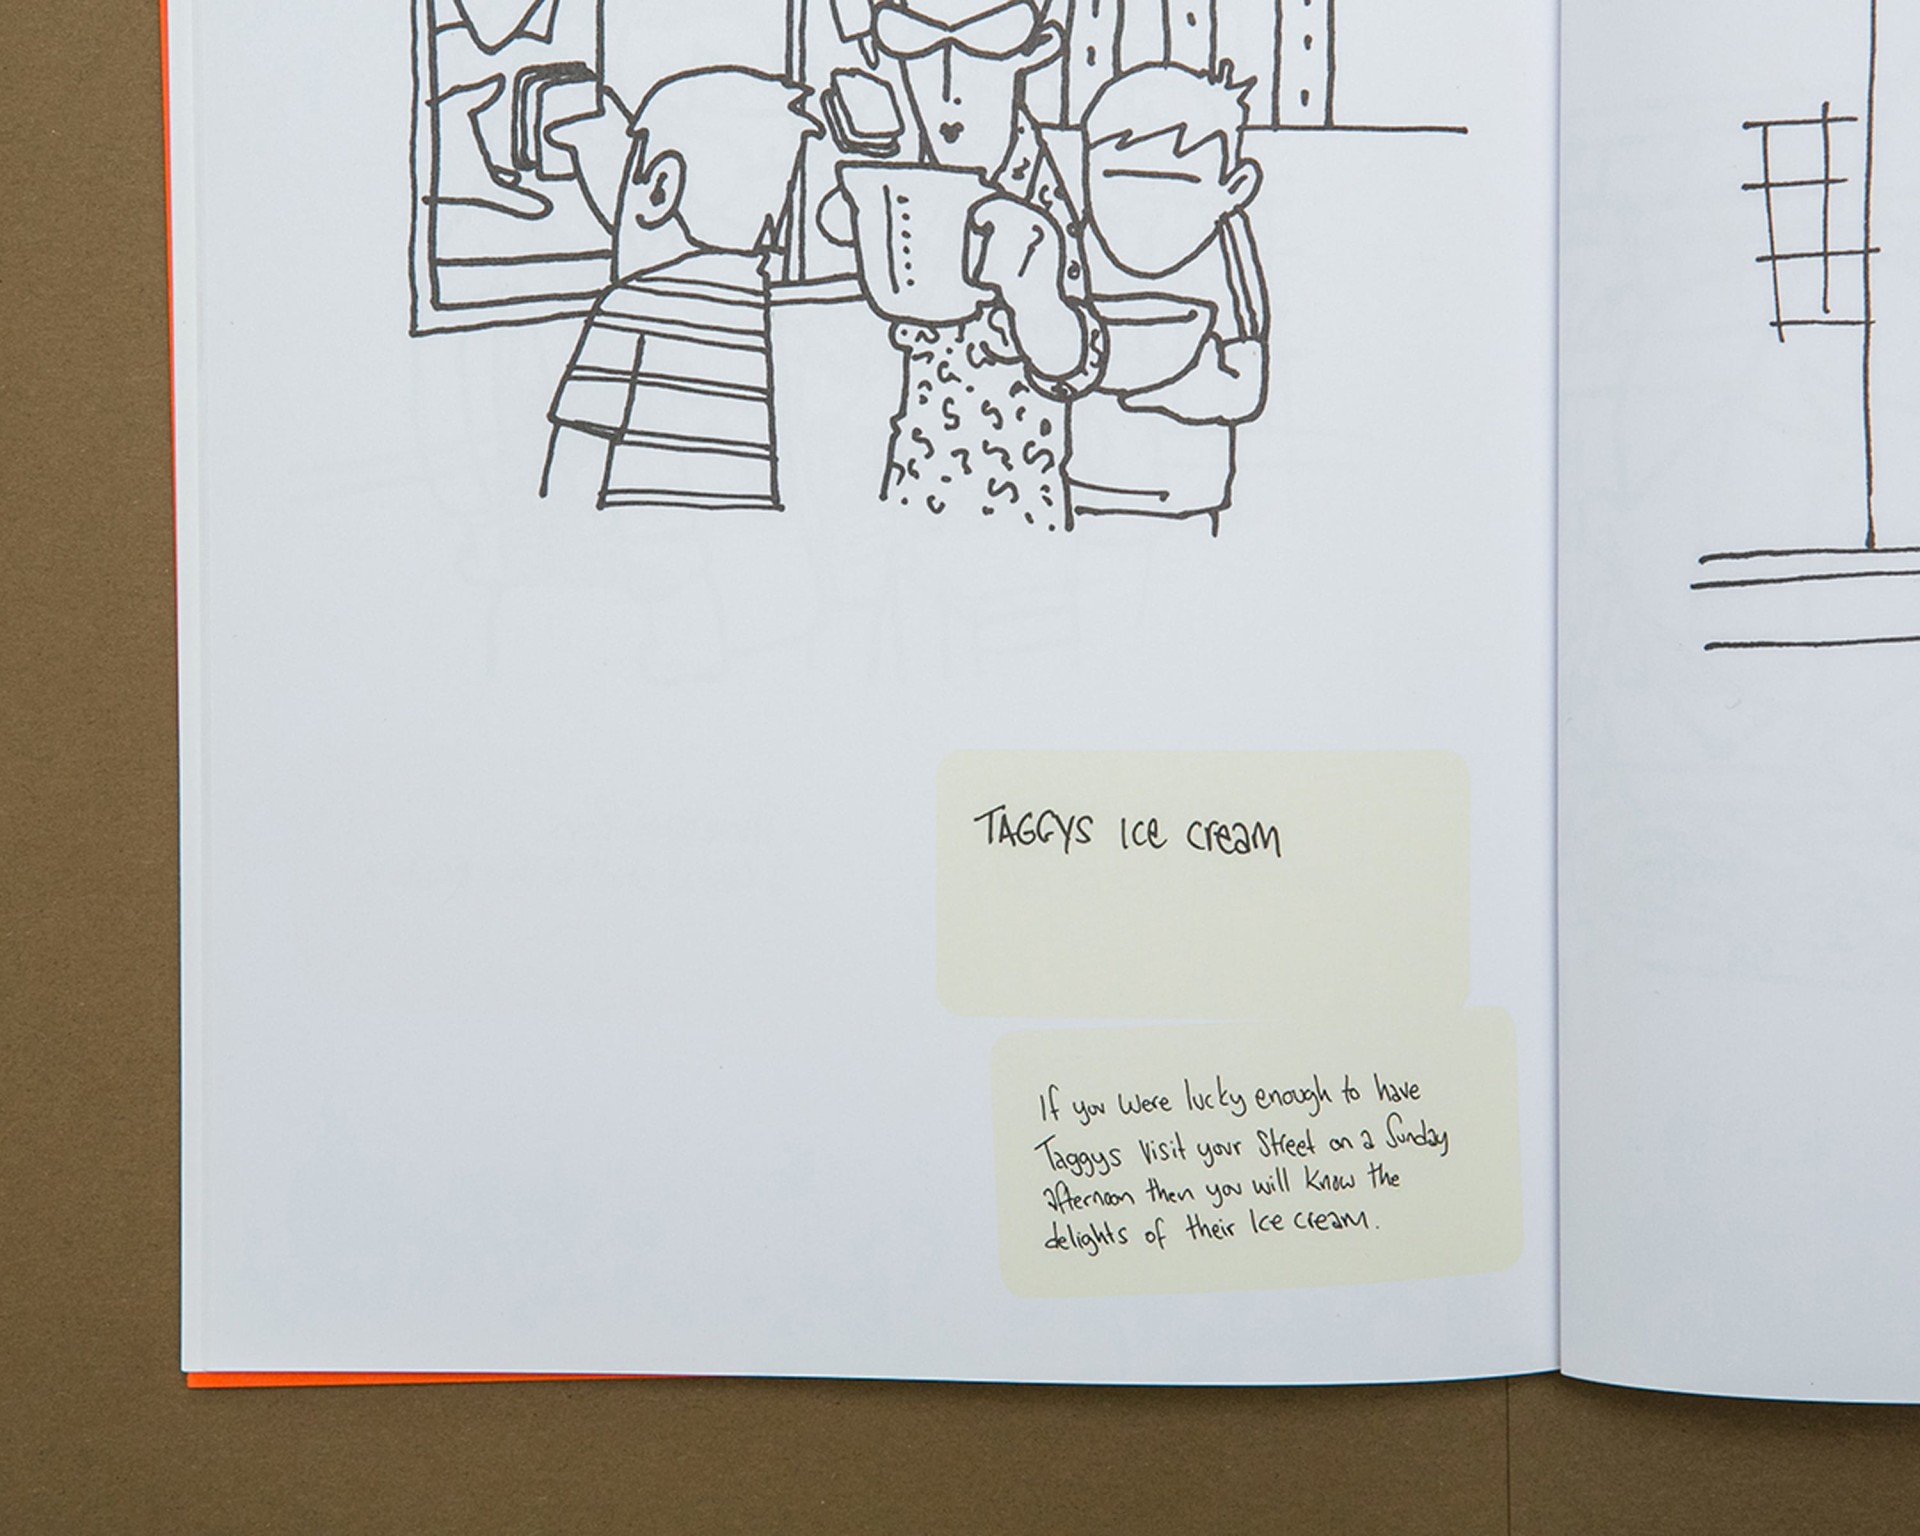 TAGGYS Ice cream
If you were lucky enough to have
Taggys visit your street on a Sunday
afternoon then you will know the
delights of their Ice cream.